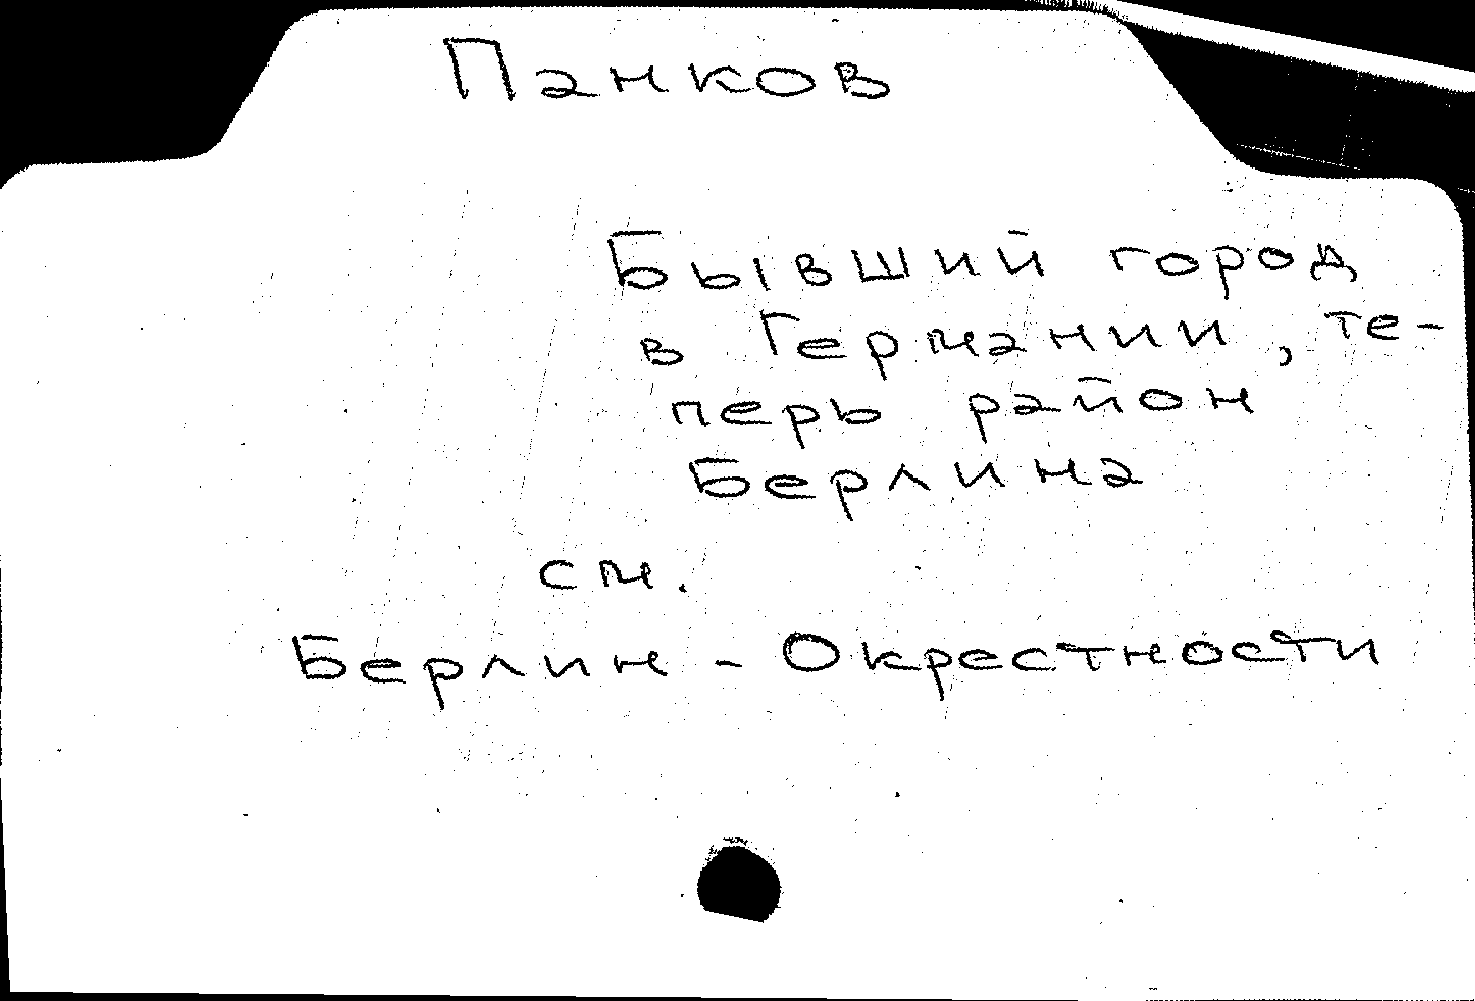 Панков
Бывший город
в Германии, те-
перь район
Берлина
см.
Берлин - Окрестности